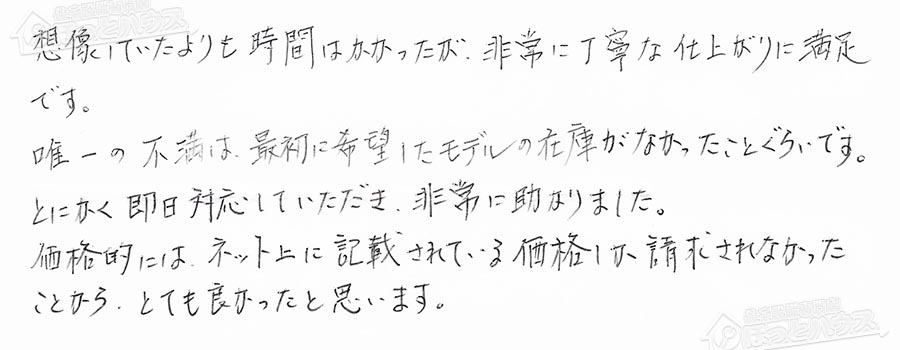 想像していたよりも時間はかかったが、非常に丁寧な仕上がりに満足
です。
唯一の不満は、最初に希望したモデルの在庫がなかったことぐらいです。
とにかく即日対応していただき、非常に助かりました。
価格的には、ネット上に記載されている価格しか請求されなかった
ことから、とても良かったと思います。
ほっとハウス